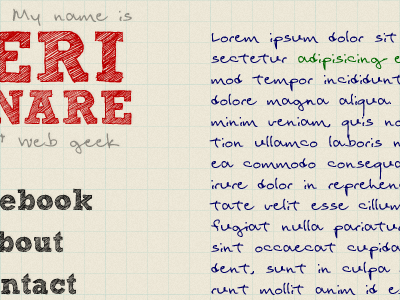 My name is
ERI
NARE
web geek
ebook
bout
ntact
Lorem ipsum dolor sit
sectetur adipisicing e
mod tempor incididunt
dolore magna aliqua
minim veniam, quis no
tion ullamco laboris n
ea commodo consequa
irure dolor in reprehen
tate velit esse cillum
fugiat nulla pariatur
sint occaecat cupida
dent, sunt in culpa
runt mollit anim id es